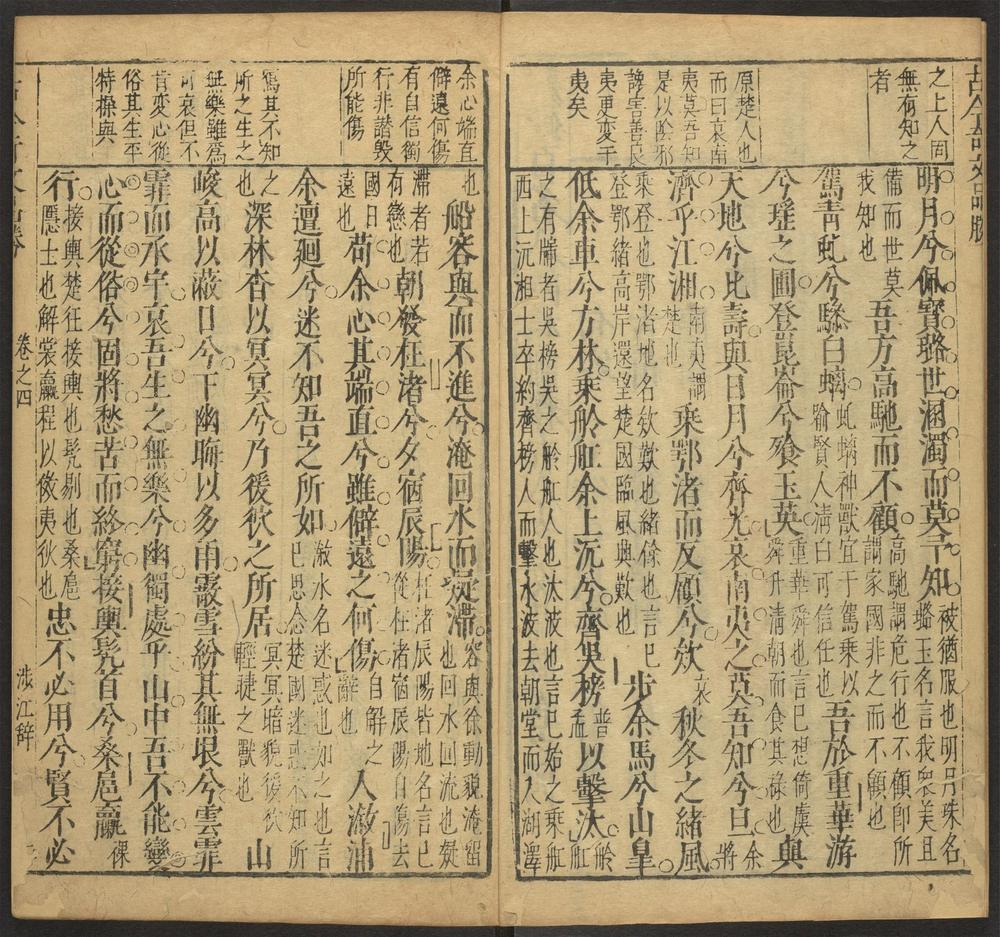 之上人固
無有知之
者
原楚人也
而曰哀南
夷莫吾知
是以陰邪
讒害善良
夷更變于
夷矣
明月兮佩寶璐世溷濁而莫予知被猶服也明月珠名璐玉名言我衆美且
備而世莫我知也吾方高馳而不顧高馳謂危行也不顧卽所謂家國非之而不顧也
駕青虬兮驂白螭虬螭神獸宜于駕乘以喻賢人淸白可信任也吾於重華游
兮瑤之圃登崑崙兮飧玉英重華舜也言已想倚虞舜升淸朝而食其祿也與
天地兮比壽與日月兮齊光哀南夷之莫吾知兮旦余將
濟乎江湘南夷謂楚也乘鄂渚而反顧兮欸哀秋冬之緒風
乘登也鄂渚地名欸歎也緒餘也言已登鄂緒高岸還望楚國臨風輿歎也步余馬兮山皐
低余車兮方林乘舲舡余上沅兮齊吳榜普孟以擊汰舲舡
之有牕者吳榜吳之舲舡人也汰波也言已始之乘舡西上沅湘士卒約齊榜人而擊水波去朝堂而入湖澤
余心端直
僻遠何傷
有自信獨
行非諧毀
所能傷
寫其不知
所之生之
無樂雖爲
可哀但不
肯変心從
俗其生平
特操與
也船容與而不進兮淹回水而凝滯容與徐動貌淹留也回水回流也凝
滯者若有戀也朝發枉渚兮夕宿辰陽枉渚辰陽皆地名言已從枉渚宿辰陽自傷去
國日遠也苟余心其端直兮雖僻遠之何傷自解之辭也入漵浦
余邅廻兮迷不知吾之所如漵水名迷惑也如之也言已思念楚國迷惑不知所
之也深林杳以冥冥兮乃猨狖之所居冥冥暗貌猨狖輕㨗之獸也山
峻高以蔽日兮下幽晦以多雨霰雪紛其無垠兮雲霏
霏而承宇哀吾生之無樂兮幽獨處乎山中吾不能變
心而從俗兮固將愁苦而終窮接輿髠首兮桑扈臝裸
行接輿楚狂接輿也髠剔也桑扈隱士也解裳臝程以傚夷狄也忠不必用兮賢不必
卷之四
涉江辭